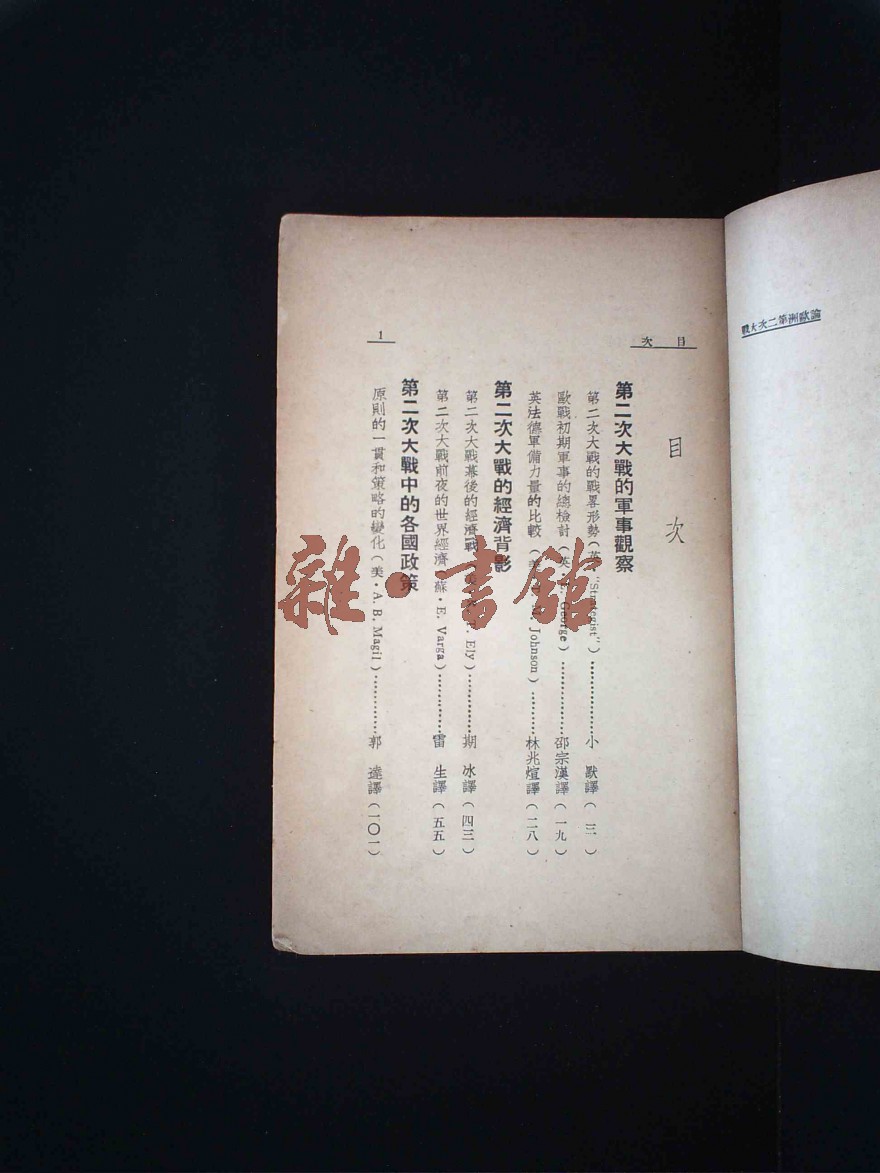 論歐洲第二次大戰
目次
目次
第二次大戰的軍事觀察
第二次大戰的戰畧形勢(英 "Strategist")………………小 默譯(三)
歐戰初期軍事的總檢討(英 George)………………邵宗漢譯(一九)
英法德軍備力量的比較(美 Johnson)…………林兆煊譯(二八)
第二次大戰的經濟背影
第二次大戰幕後的經濟戰 Ely)…………期 冰譯(四三)
第二次大戰前夜的世界經濟(蘇・E. Varga)……………雷 生譯(五五)
第二次大戰中的各國政策
原則的一貫和策略的變化(美・A. B. Magil)…………郭 達譯(一〇一)
1
雜・書館